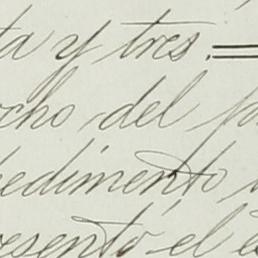 ta y tres.
cho del
edimento
esentó el